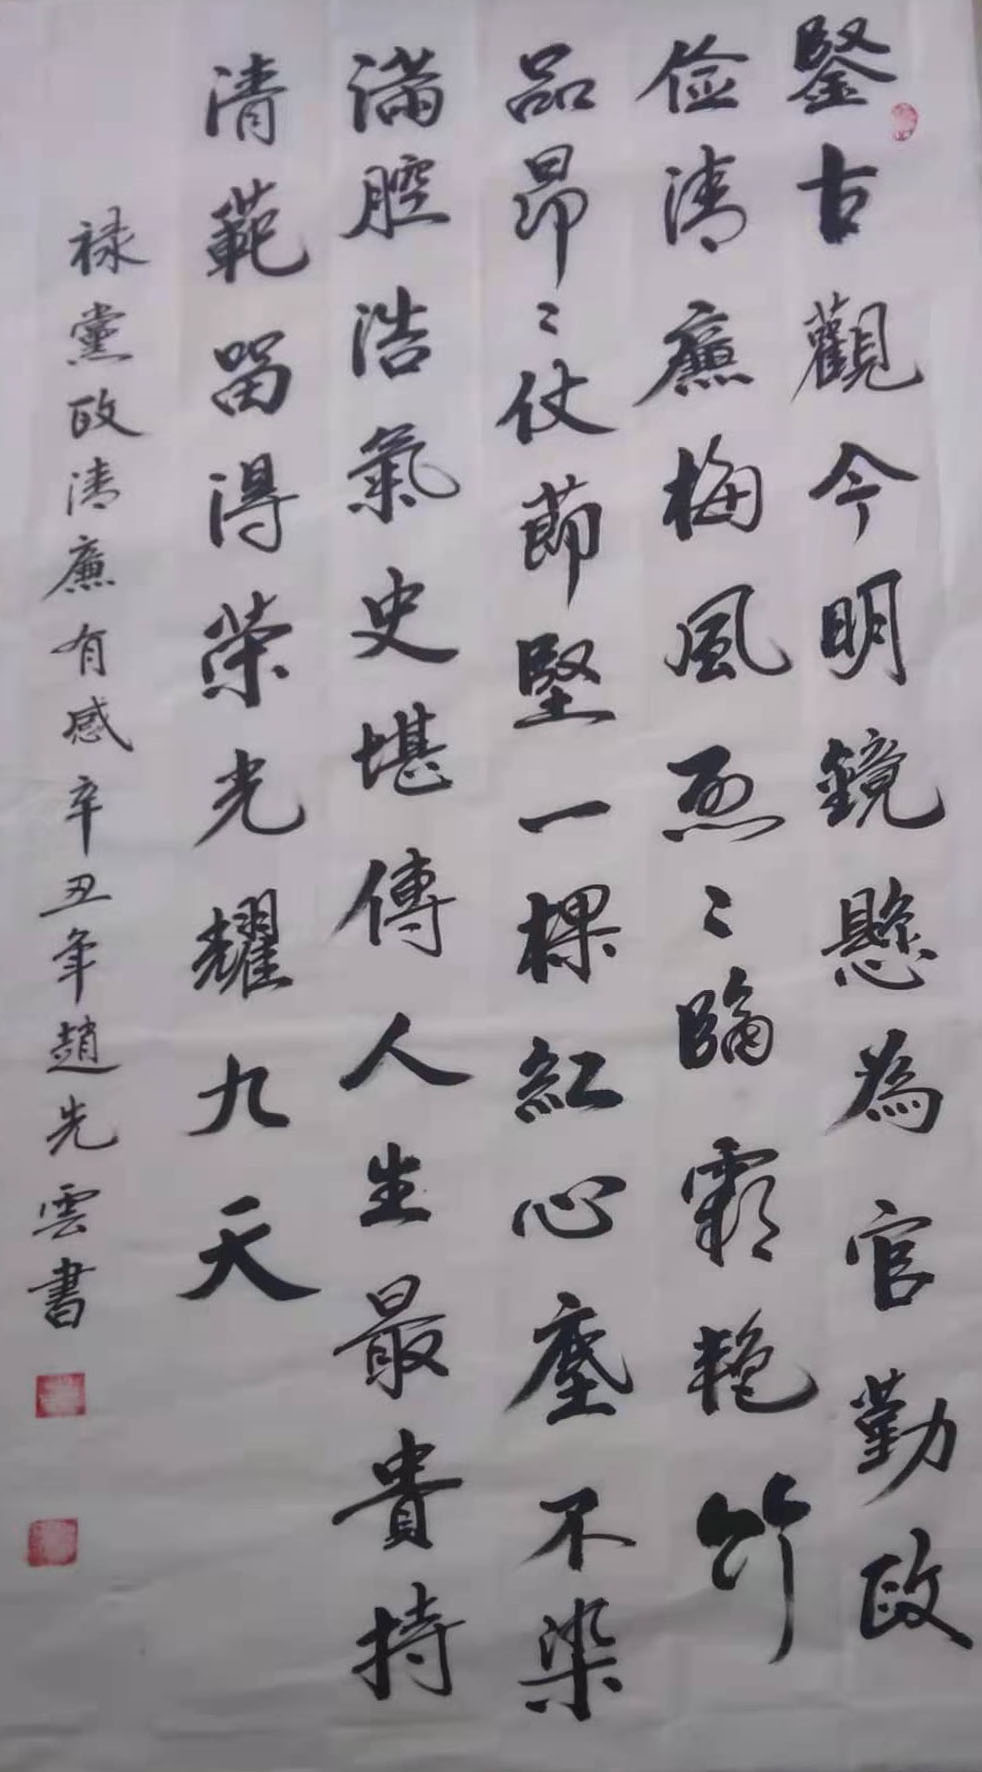 鋻古觀今明鏡懸為官勤政
俭清廉梅風烈〻臨霜艳竹
品昂〻仗節堅一棵紅心塵不染
满腔浩氣史堪傳人生最貴持
清範留得榮光耀九天
禄黨政清廉有感辛丑年趙先雲書